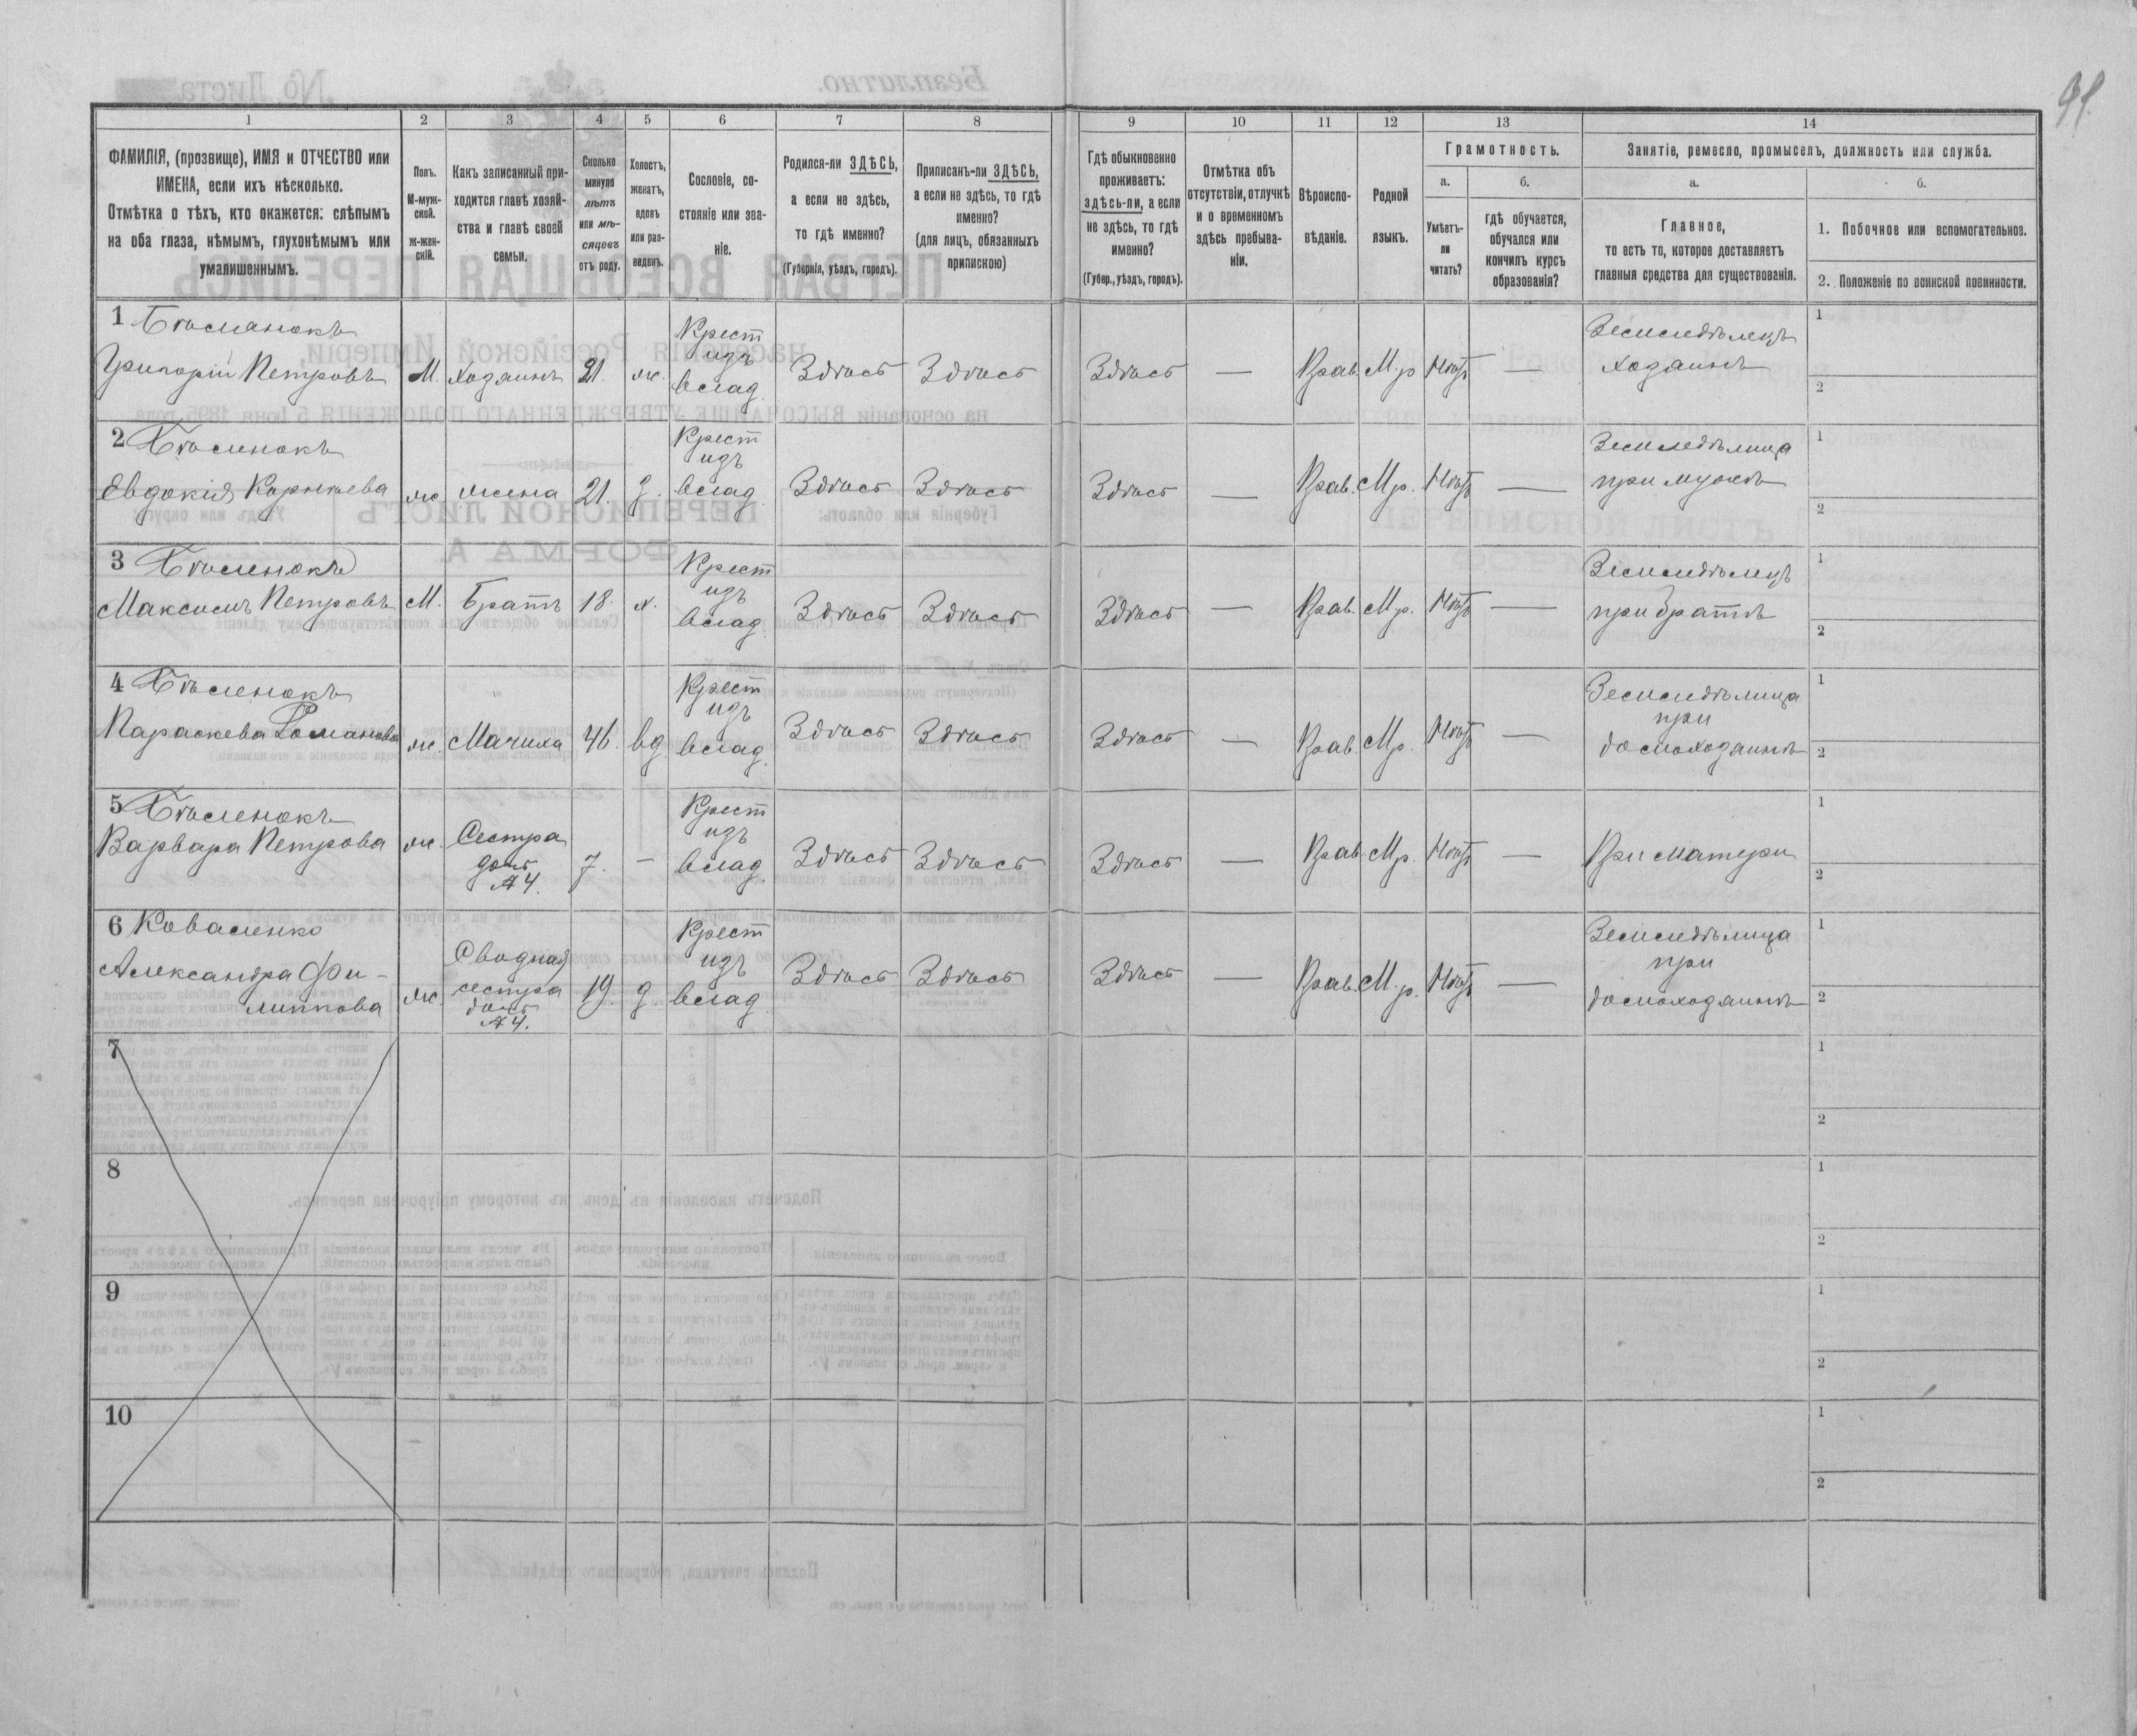 91.
1
2
3
4
5
6
7
8
9
10
11
12
13
14
ФАМИЛІЯ, (прозвище), ИМЯ и ОТЧЕСТВО или
ИМЕНА, если ихъ нѣсколько.
Отмѣтка о тѣхъ, кто окажется: слѣпымъ
на оба глаза, нѣмымъ, глухонѣмымъ или
умалишеннымъ.
Полъ.
М-муж-
ской.
ж-жен-
скій.
Какъ записанный при-
ходится главѣ хозяй-
ства и главѣ своей
семьи.
Сколько
минуло
лѣтъ
или мѣ-
сяцевъ
отъ роду.
Холостъ,
женатъ,
вдовъ
или раз-
веденъ.
Сословіе, со-
стояніе или зва-
ніе.
Родился-ли ЗДѢСЬ,
а если не здѣсь,
то гдѣ именно?
(Губернія, уѣздъ, городъ).
Приписанъ-ли ЗДѢСЬ,
а если не здѣсь, то гдѣ
именно?
(для лицъ, обязанныхъ
припискою)
Гдѣ обыкновенно
проживаетъ:
здѣсь-ли, а если
не здѣсь, то гдѣ
именно?
(Губер., уѣздъ, городъ).
Отмѣтка объ
отсутствіи, отлучкѣ
и о временномъ
здѣсь пребыва-
ніи.
Вѣроиспо-
вѣданіе.
Родной
языкъ.
Грамотность.
а.
Умѣетъ-
ли
читать?
б.
гдѣ обучается,
обучался или
кончилъ курсъ
образованія?
Занятіе, ремесло, промыселъ, должность или служба.
а.
Главное,
то есть то, которое доставляетъ
главныя средства для существованія.
б.
1. Побочное или вспомогательное.
2. Положеніе по воинской повинности.
1
Григорій Петровъ
М. Хозяинъ 21. ж.
Крест
изъ
влад.
Здѣсь Здѣсь Здѣсь — Прав. М.р Нѣтъ —
Земледѣлецъ
хозяинъ
1
2
2
Евдокія Корнѣева
ж жена 21. з.
Крест
изъ
влад
Здѣсь Здѣсь Здѣсь — Прав. Мр. Нѣтъ —
Земледѣлица
при мужѣ
1
2
3
Максимъ Петровъ
М. Братъ 18. х.
Крест
изъ
влад
Здѣсь Здѣсь Здѣсь — Прав. Мр. Нѣтъ —
Земледѣлецъ
при братѣ
1
2
4
Параскева Романова
ж. Мачиха 46. вд
Крест
изъ
влад.
Здѣсь Здѣсь Здѣсь — Прав. Мр. Нѣтъ —
Земледѣлица
при
домохозяинѣ
1
2
5
Варвара Петрова
ж. Сестра
дочь
№ 4.
7. —
Крест
изъ
влад.
Здѣсь Здѣсь Здѣсь — Прав. Мр. Нѣтъ —
При матери
1
2
6 Коваленко
Александра Фи-
липпова
ж. Сводная
сестра
дочь
№ 4.
19. д.
Крест
изъ
влад
Здѣсь Здѣсь Здѣсь — Прав. М.р. Нѣтъ —
Земледѣлица
при
домохозяинѣ
1
2
7
1
2
8
1
2
9
1
2
10
1
2